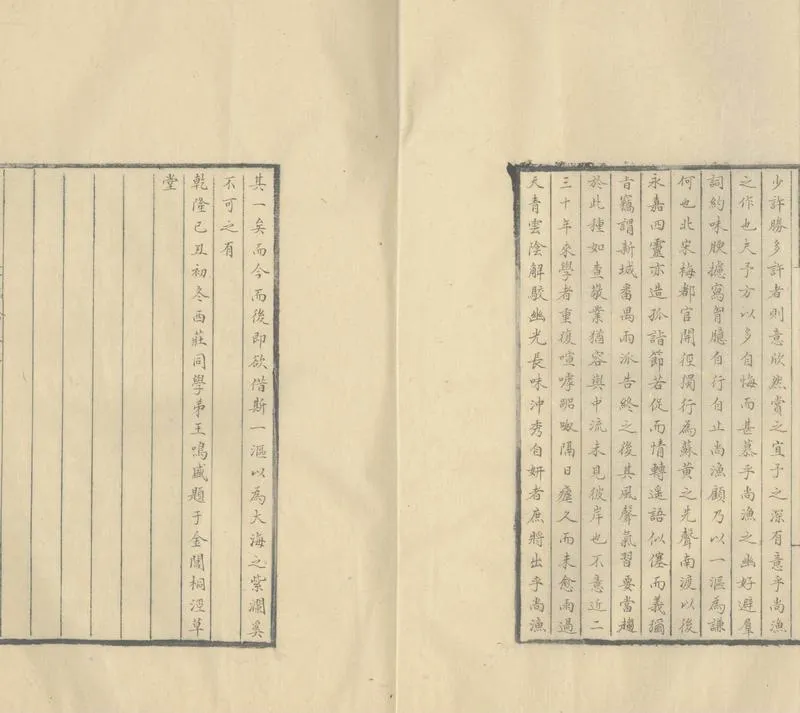 少許勝多許者則意欣然賞之宜予之深有意乎尚漁
之作也夫予方以多自悔而甚慕乎尚漁之幽好避羣
詞約味腴攄寫智臆自行自止尚漁顧乃以一漚為謙
何也北宋梅都官開徑獨行為蘇黃之先聲南渡以後
永嘉四靈亦造孤詣節若促而情轉遥語似僿而義彌
旨竊謂新城番禺兩派告終之後其風聲氣習要當趨
於此種如查敬業猶容與中流未見彼岸也不意近二
三十年來學者重復喧嘑怊呶隔日瘧久而未愈雨過
天青雲陰解駮幽光長味沖秀自妍者庶將出乎尚漁
其一矣而今而後即欲偕斯一漚以為大海之紫瀾奚
不可之有
乾隆己丑初冬西莊同學弟王鳴盛題于金閶桐涇草
堂